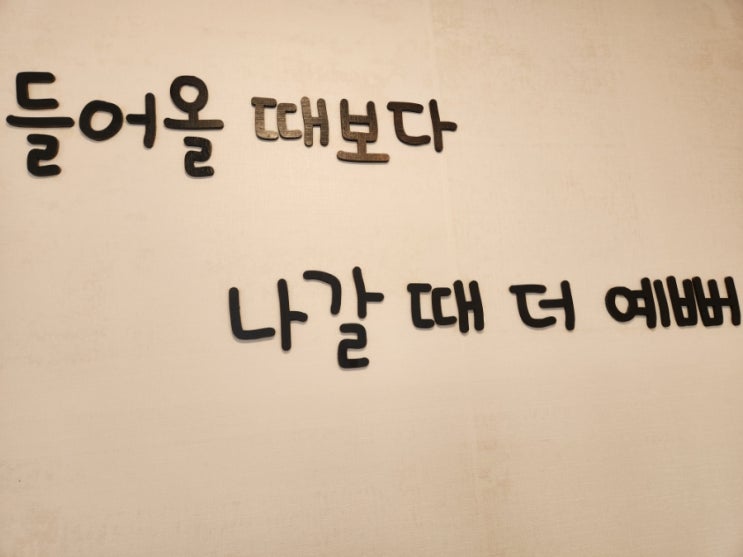 들어올 때보다
나갈 때 더 예뻐